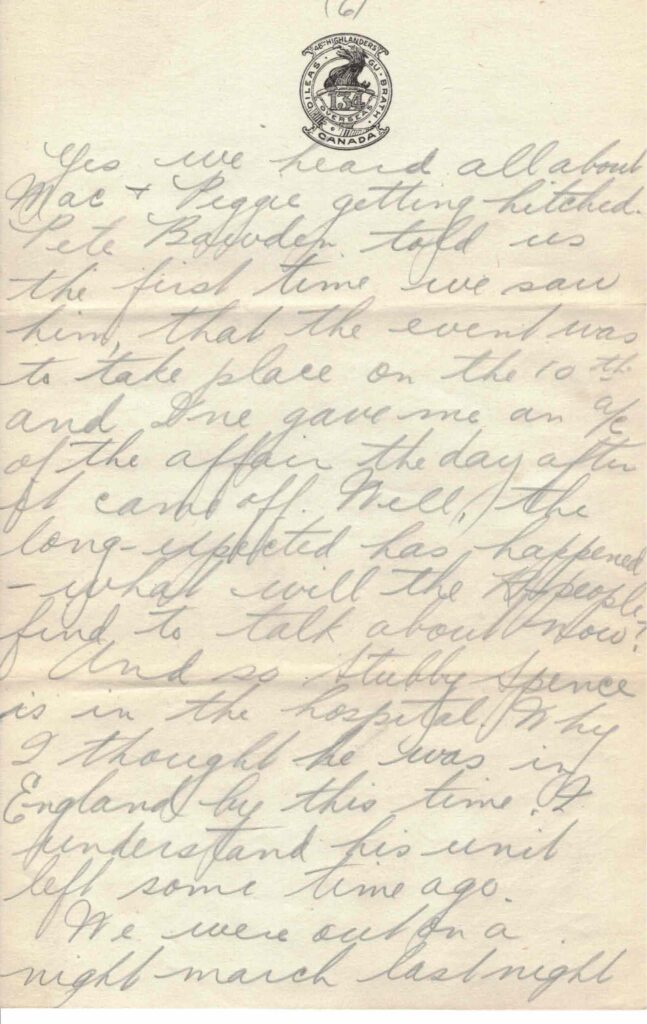 (6)
48TH HIGHLANDERS
DILEAS GU BRATH
134
OVERSEAS
CANADA
Yes we heard all about
Mac + Peggie getting hitched.
Pete Bowden told us
the first time we saw
him, that the event was
to take place on the 10th
and gave me an a/c
of the affair the day after
it came off. Well, the
long-expected has happened
- what will the people
find to talk about now?
And so Stubby Spence
is in the hospital. Why
I thought he was in
England by this time. I
understand his unit
left some time ago.
We were out on a
night march last night